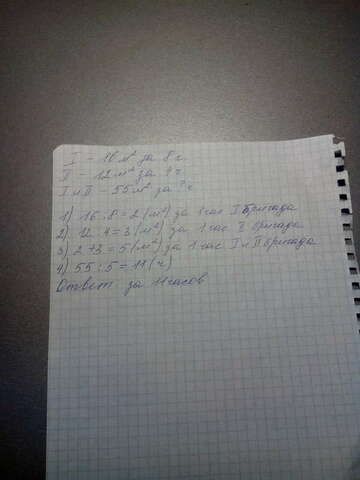 I - 16 м² за 8 г.
II - 12 м² за 4 ч
I и II - 55 м² за ? ч
1) 16 : 8 = 2 (м²) за 1 час I бригада
2) 12 : 4 = 3 (м²) за 1 час II бригада
3) 2 + 3 = 5 (м²) за 1 час I и II бригада
4) 55 : 5 = 11 (ч)
Ответ за 11 часов